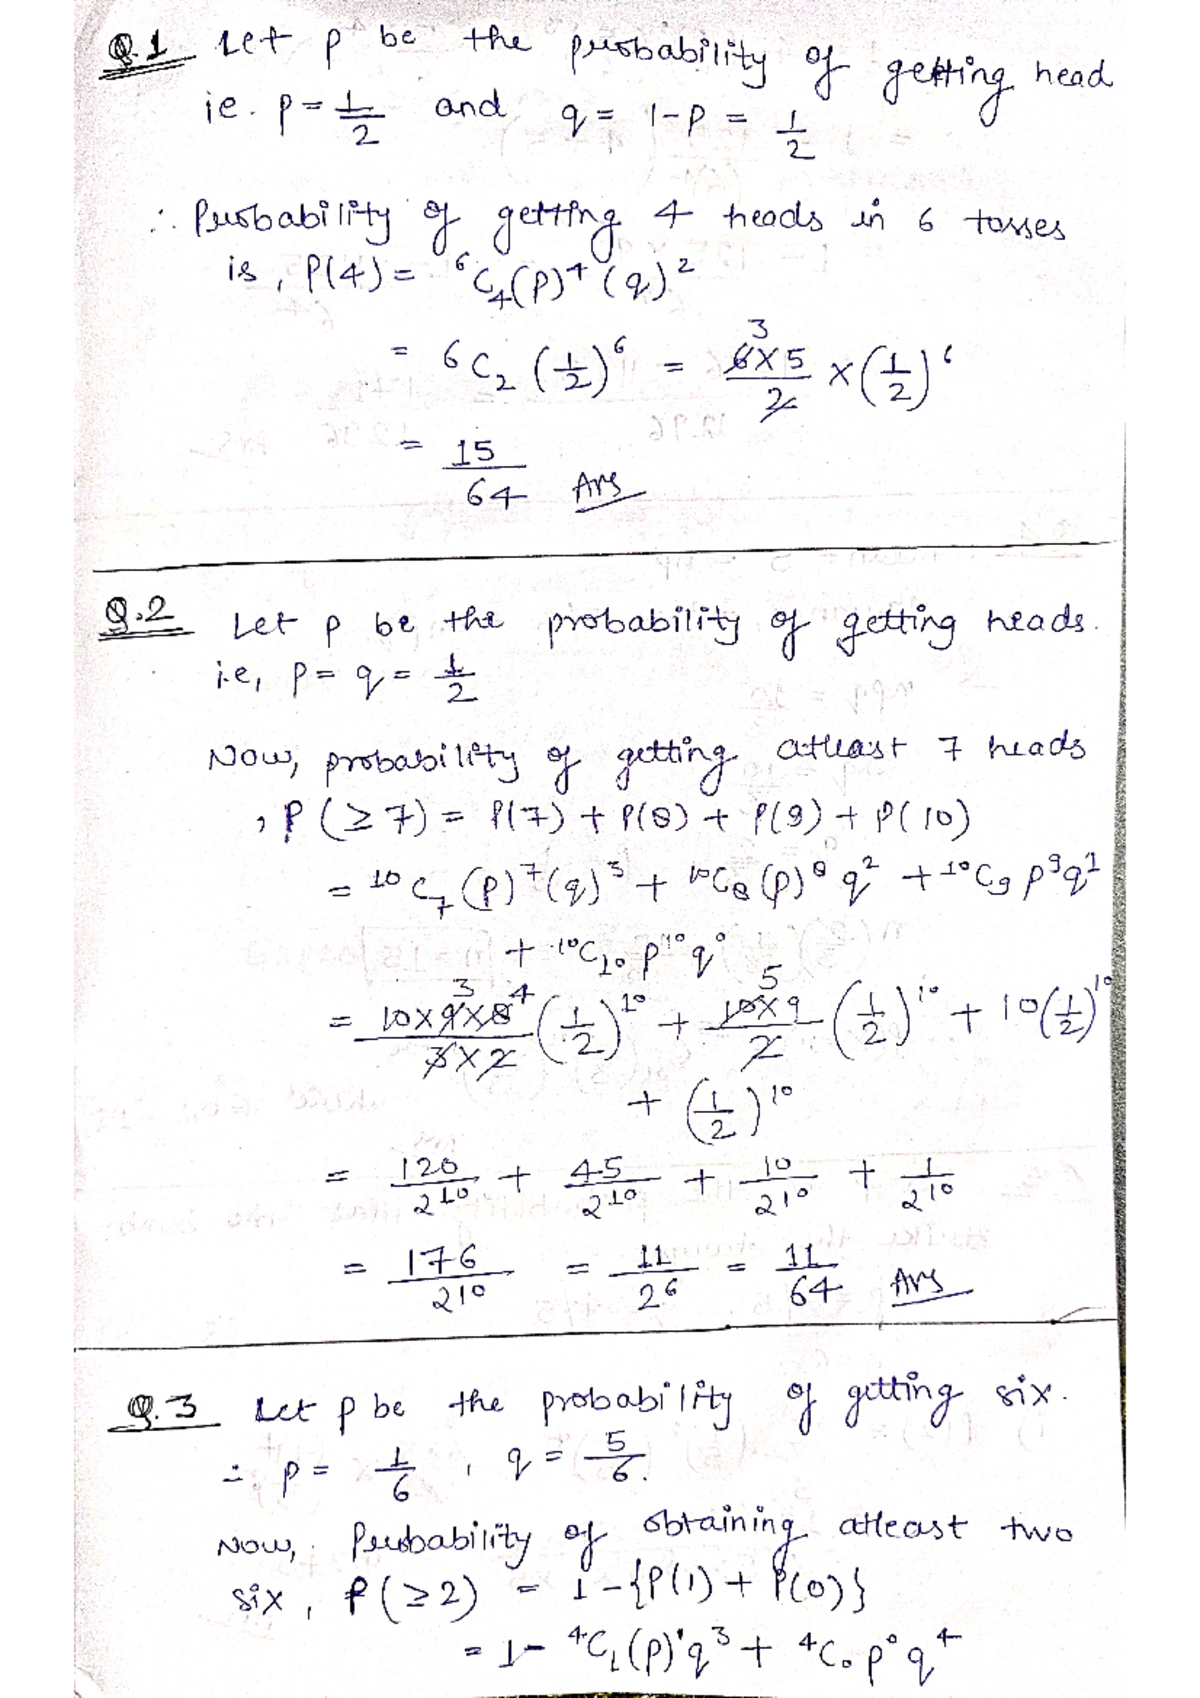 Q.1 Let p be the probability of getting head
ie. p = 1/2 and q = 1-p = 1/2
∴ Probability of getting 4 heads in 6 tosses
is, P(4) = ⁶C₄(p)⁴(q)²
= 6C₂ (1/2)⁶ = 3 6×5/2 × (1/2)⁶
= 15/64 Ans
Q.2 Let p be the probability of getting heads.
i.e, p = q = 1/2
Now, probability of getting atleast 7 heads
, P(≥7) = P(7) + P(8) + P(9) + P(10)
= ¹⁰C₇(p)⁷(q)³ + ¹⁰C₈(p)⁸q² + ¹⁰C₉p⁹q¹
+ ¹⁰C₁₀p¹⁰q⁰
= 10×9×8/3×2 3 4 (1/2)¹⁰ + 5 10×9/2 (1/2)¹⁰ + 10(1/2)¹⁰
+ (1/2)¹⁰
= 120/2¹⁰ + 45/2¹⁰ + 10/2¹⁰ + 1/2¹⁰
= 176/2¹⁰ = 11/2⁶ = 11/64 Ans
Q.3 Let p be the probability of getting six.
∴ p = 1/6, q = 5/6.
Now, Probability of obtaining atleast two
six, P(≥2) = 1-{P(1) + P(0)}
= 1- ⁴C₁(p)¹q³ + ⁴C₀p⁰q⁴